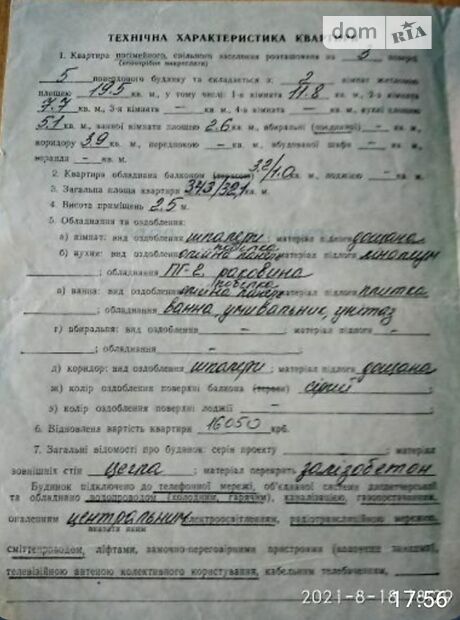 dom RIA
ТЕХНІЧНА ХАРАКТЕРИСТИКА КВАРТИРИ
1. Квартира посімейного, спільного заселення розташована на 3 поверсі
(непотрібне викреслити)
5 поверхового будинку та складається з 2 кімнат житловою
площею 19.5 кв. м., у тому числі 1-а кімната 11.8 кв. м., 2-а кімната
7.7 кв. м., 3-я кімната — кв. м., 4-а кімната — кв. м., кухні площею
5.1 кв. м., ванної кімнати площею 2.6 кв. м., вбиральні (поєднаної) - кв. м.,
коридору 3.9 кв. м., передпокою — кв. м., вбудованої шафи — кв. м.,
веранда — кв. м.
2. Квартира обладнана балконом (терасою) 3.2/1.0 кв. м., лоджією — кв. м.
3. Загальна площа квартири 34.3/32.1 кв. м.
4. Висота приміщень 2.5 м.
5. Обладнання та оздоблення:
а) кімнат: вид оздоблення шпалери; матеріал підлоги дощана
б) кухні: вид оздоблення побілка олійна панель матеріал підлоги лінолеум
; обладнання ПГ-2, раковина
в) ванна: вид оздоблення побілка олійна панель матеріал підлоги плитка
; обладнання ванна, умивальник, унітаз
г) вбиральня: вид оздоблення — ; матеріал підлоги —
; обладнання —
д) коридор: вид оздоблення шпалери; матеріал підлоги дощана
ж) колір оздоблення поверхні балкона (тераси) сірий
з) колір оздоблення поверхні лоджії —
6. Відновлена вартість квартири 16050 крб.
7. Загальні відомості про будинок: серія проекту ; матеріал
зовнішніх стін цегла; матеріал перекрить залізобетон
Будинок підключено до телефонної мережі, об'єднаної системи диспетчерської
та обладнано водопроводом (холодним, гарячим), каналізацією, газопостачанням,
опаленням центральним електроосвітленням, радіотрансляційною мережею,
вказати яким
сміттєпроводом, ліфтами, замочно-переговорними пристроями
телевізійною антеною колективного користування, кабельним телебаченням,
2021-8-18
17:56